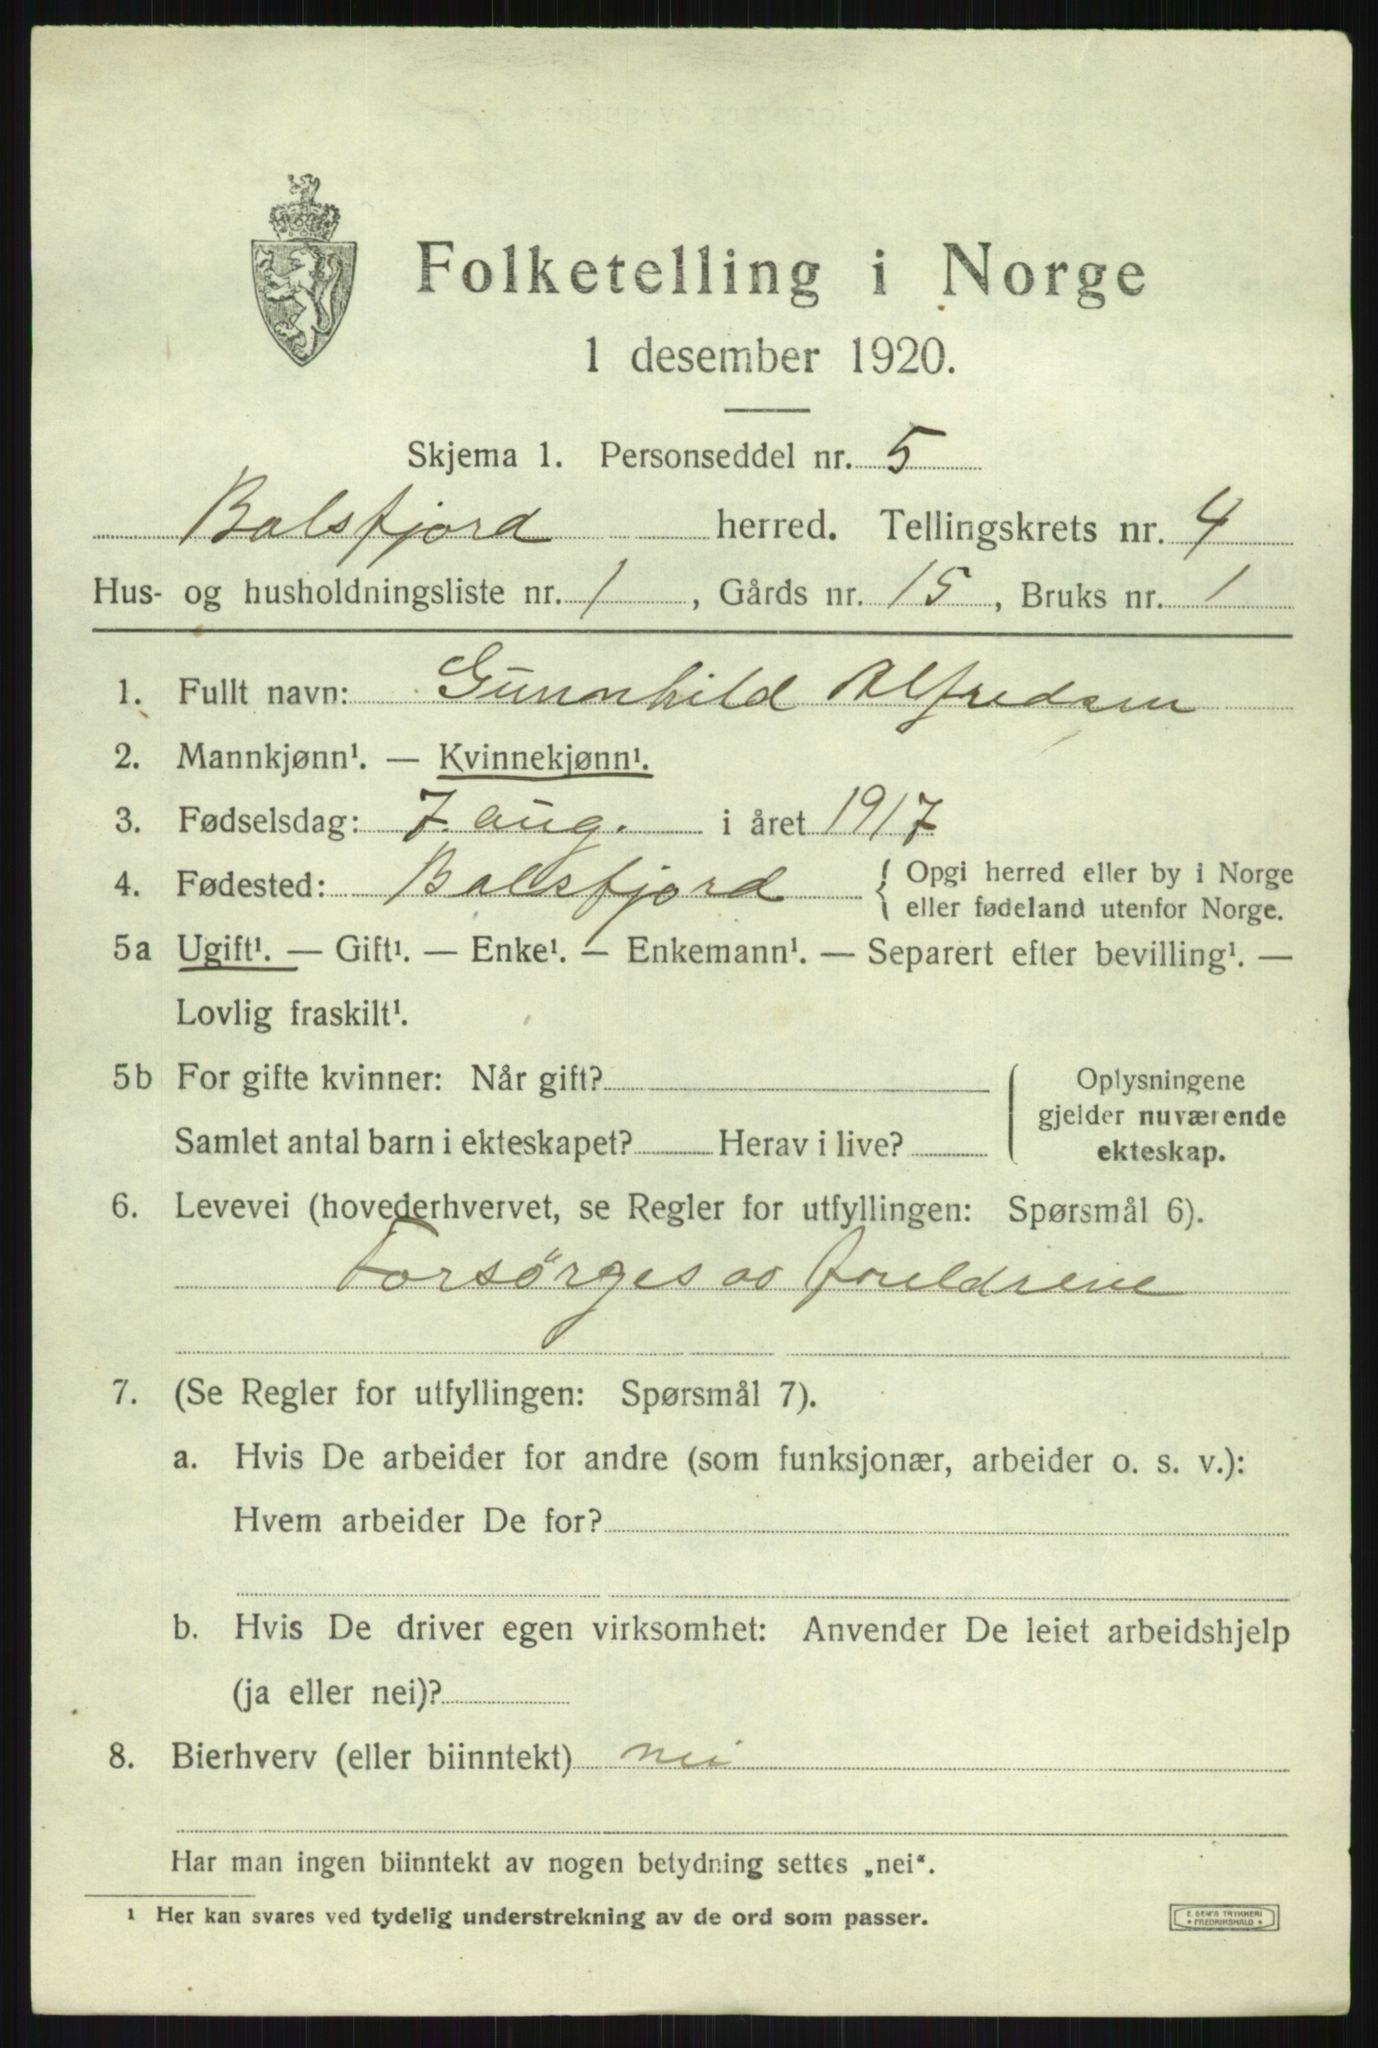 Folketelling i Norge
1 desember 1920.
Skjema 1. Personseddel nr. 5
Balsfjord herred. Tellingskrets nr. 4
Hus- og husholdningsliste nr. 1, Gårds nr. 15, Bruks nr. 1
1. Fullt navn: Gunnhild Alfredsen
2. Mannkjønn¹. — Kvinnekjønn¹.
3. Fødselsdag: 7. aug. i året 1917
4. Fødested: Balsfjord { Opgi herred eller by i Norge
eller fødeland utenfor Norge.
5a Ugift¹. — Gift¹. — Enke¹. — Enkemann¹. — Separert efter bevilling¹. —
Lovlig fraskilt¹.
5b For gifte kvinner: Når gift?
Samlet antal barn i ekteskapet? Herav i live?
Oplysningene
gjelder nuværende
ekteskap.
6. Levevei (hovederhvervet, se Regler for utfyllingen: Spørsmål 6).
Forsörges av foreldrene
7. (Se Regler for utfyllingen: Spørsmål 7).
a. Hvis De arbeider for andre (som funksjonær, arbeider o. s. v.):
Hvem arbeider De for?
b. Hvis De driver egen virksomhet: Anvender De leiet arbeidshjelp
(ja eller nei)?
8. Bierhverv (eller biinntekt) nei
Har man ingen biinntekt av nogen betydning settes „nei“.
¹ Her kan svares ved tydelig understrekning av de ord som passer.
E. SEM'S TRYKKERI
FREDRIKSHALD